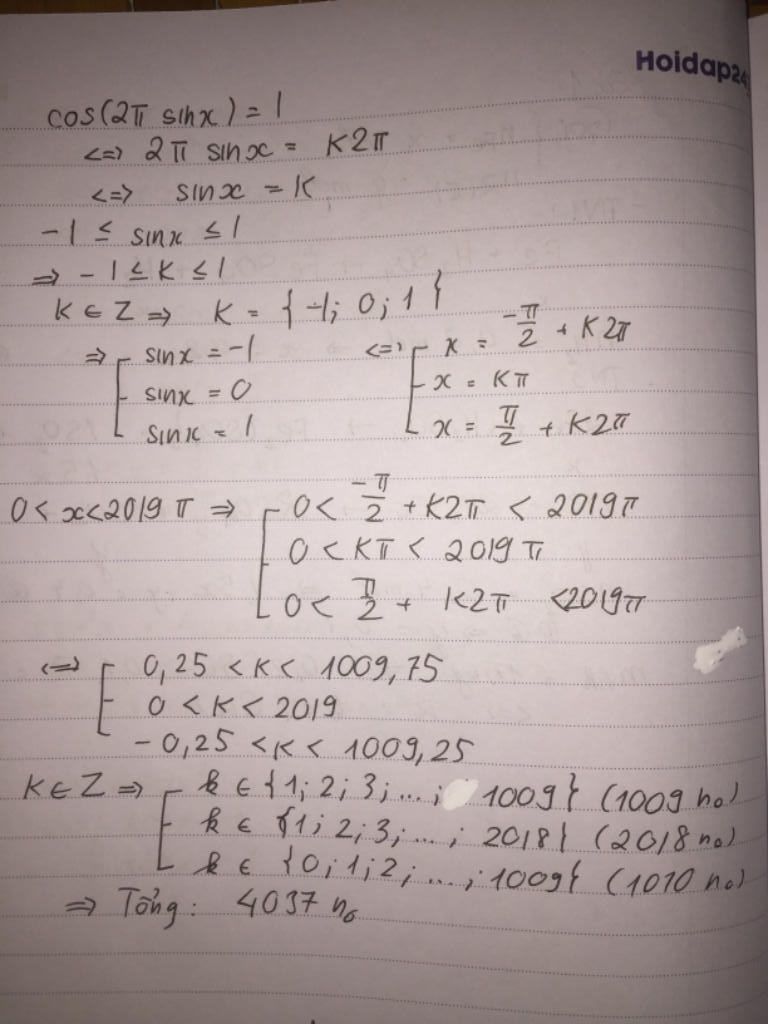 Hoidap24
cos(2π sinx) = 1
<=> 2π sinx = K2π
<=> sinx = K
-1 ≤ sinx ≤ 1
=> -1 ≤ K ≤ 1
K ∈ Z => K = {-1; 0; 1}
=> [ sinx = -1 <=> [ x = -π/2 + K2π
sinx = 0 x = Kπ
sinx = 1 x = π/2 + K2π
0 < x < 2019π => [ 0 < -π/2 + K2π < 2019π
0 < Kπ < 2019π
0 < π/2 + K2π < 2019π
<=> [ 0,25 < K < 1009,75
0 < K < 2019
-0,25 < K < 1009,25
K ∈ Z => [ k ∈ {1; 2; 3; ...; 1009} (1009 no)
k ∈ {1; 2; 3; ...; 2018} (2018 no)
k ∈ {0; 1; 2; ...; 1009} (1010 no)
=> Tổng: 4037 no